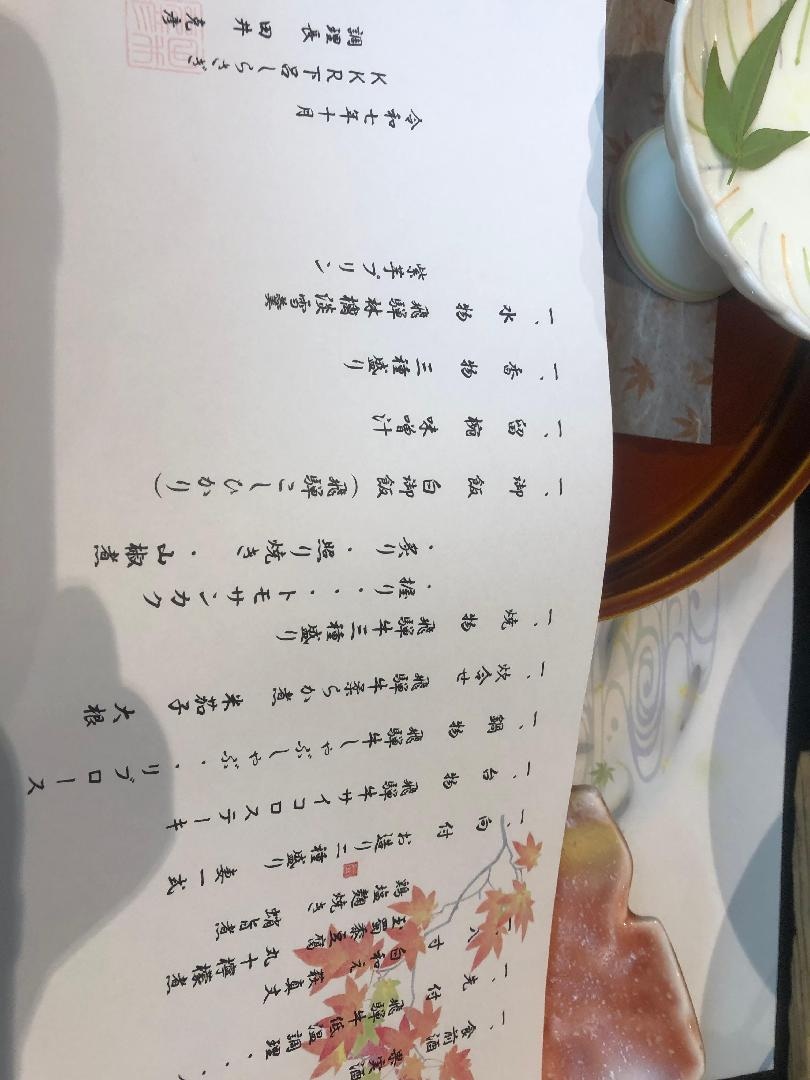 一、食前酒 果実酒
一、先付 飛騨牛低温調理
一、八寸 白和え 萩真丈
丸十檸檬煮
玉蜀黍豆腐 蛸旨煮
鶏塩麹焼き
一、向付 お造り二種盛り 妻一式
一、台物 飛騨牛サイコロステーキ
一、鍋物 飛騨牛しゃぶしゃぶ・・リブロース
一、炊合せ 飛騨牛柔らか煮 米茄子 大根
一、焼物 飛騨牛三種盛り
・握り・・・トモサンカク
・炙り・照り焼き・山椒煮
一、御飯 白御飯(飛騨こしひかり)
一、留椀 味噌汁
一、香物 三種盛り
一、水物 飛騨林檎淡雪羹
紫芋プリン
令和七年十月
KKR下呂しらさぎ
調理長 田井 克彦